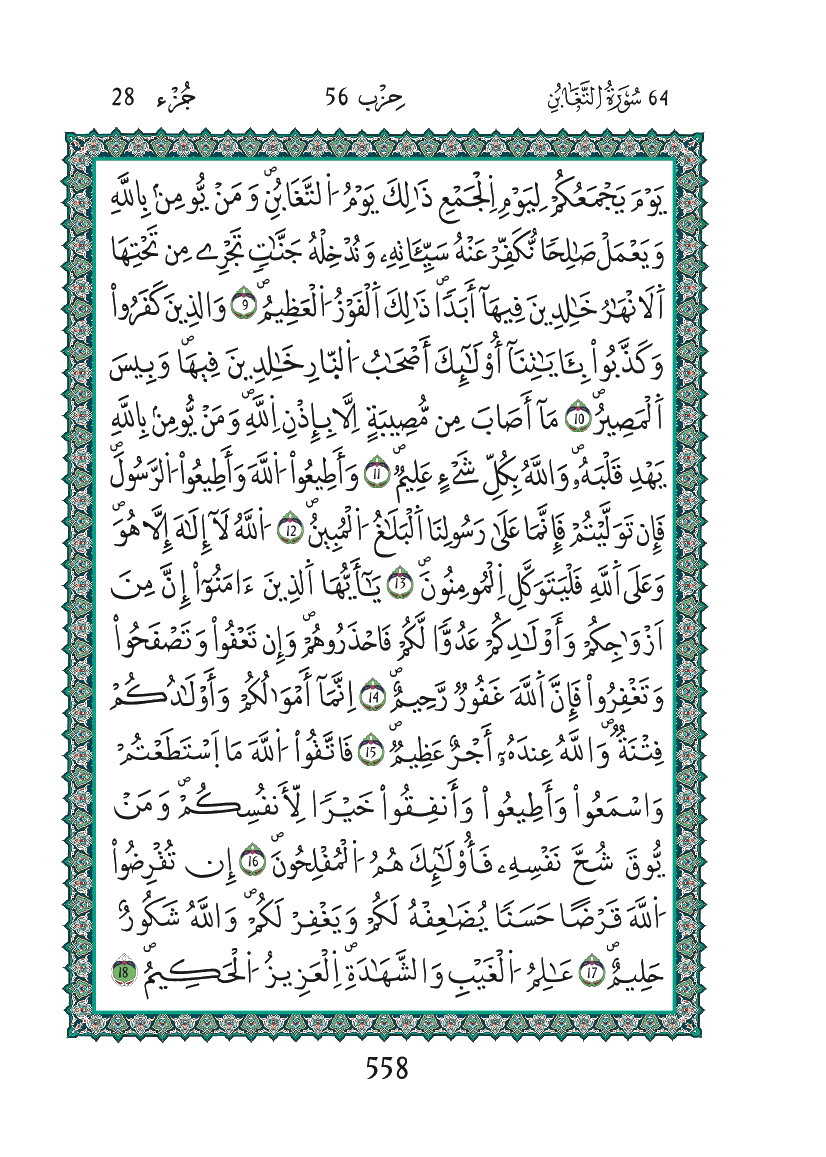 64 سُورَةُ التَّغَابُنِ حِزْب 56 جُزْء 28
يَوْمَ يَجْمَعُكُمْ لِيَوْمِ اِ۬لْجَمْعِ ذَٰلِكَ يَوْمُ اُ۬لتَّغَابُنِۖ وَمَنْ يُّومِنۢ بِاللَّهِ
وَيَعْمَلْ صَٰلِحٗا نُّكَفِّرْ عَنْهُ سَيِّـَٔاتِهِۦ وَنُدْخِلْهُ جَنَّٰتٖ تَجْرِے مِن تَحْتِهَا
اَ۬لَانْهَٰرُ خَٰلِدِينَ فِيهَآ أَبَدٗاۖ ذَٰلِكَ اَ۬لْفَوْزُ اُ۬لْعَظِيمُۖ 9 وَالذِينَ كَفَرُواْ
وَكَذَّبُواْ بِـَٔايَٰتِنَآ أُوْلَٰٓئِكَ أَصْحَٰبُ اُ۬لنّ۪ارِ خَٰلِدِينَ فِيهَاۖ وَبِيسَ
اَ۬لْمَصِيرُۖ 10 مَآ أَصَابَ مِن مُّصِيبَةٍ اِلَّا بِإِذْنِ اِ۬للَّهِۖ وَمَنْ يُّومِنۢ بِاللَّهِ
يَهْدِ قَلْبَهُۥۖ وَاللَّهُ بِكُلِّ شَےْءٍ عَلِيمٞۖ 11 وَأَطِيعُواْ اُ۬للَّهَ وَأَطِيعُواْ اُ۬لرَّسُولَۖ
فَإِن تَوَلَّيْتُمْ فَإِنَّمَا عَلَىٰ رَسُولِنَا اَ۬لْبَلَٰغُ اُ۬لْمُبِينُۖ 12 اَ۬للَّهُ لَآ إِلَٰهَ إِلَّا هُوَۖ
وَعَلَى اَ۬للَّهِ فَلْيَتَوَكَّلِ اِ۬لْمُومِنُونَۖ 13 يَٰٓأَيُّهَا اَ۬لذِينَ ءَامَنُوٓاْ إِنَّ مِنَ
اَزْوَٰجِكُمْ وَأَوْلَٰدِكُمْ عَدُوّٗا لَّكُمْ فَاحْذَرُوهُمْۖ وَإِن تَعْفُواْ وَتَصْفَحُواْ
وَتَغْفِرُواْ فَإِنَّ اَ۬للَّهَ غَفُورٞ رَّحِيمٌۖ 14 اِنَّمَآ أَمْوَٰلُكُمْ وَأَوْلَٰدُكُمْ
فِتْنَةٞۖ وَاللَّهُ عِندَهُۥٓ أَجْرٌ عَظِيمٞۖ 15 فَاتَّقُواْ اُ۬للَّهَ مَا اَ۪سْتَطَعْتُمْ
وَاسْمَعُواْ وَأَطِيعُواْ وَأَنفِقُواْ خَيْرٗا لِّأَنفُسِكُمْۖ وَمَنْ
يُّوقَ شُحَّ نَفْسِهِۦ فَأُوْلَٰٓئِكَ هُمُ اُ۬لْمُفْلِحُونَۖ 16 إِن تُقْرِضُواْ
اُ۬للَّهَ قَرْضًا حَسَنٗا يُضَٰعِفْهُ لَكُمْ وَيَغْفِرْ لَكُمْۖ وَاللَّهُ شَكُورٌ
حَلِيمٌۖ 17 عَٰلِمُ اُ۬لْغَيْبِ وَالشَّهَٰدَةِۖ اِ۬لْعَزِيزُ اُ۬لْحَكِيمُۖ 18
558